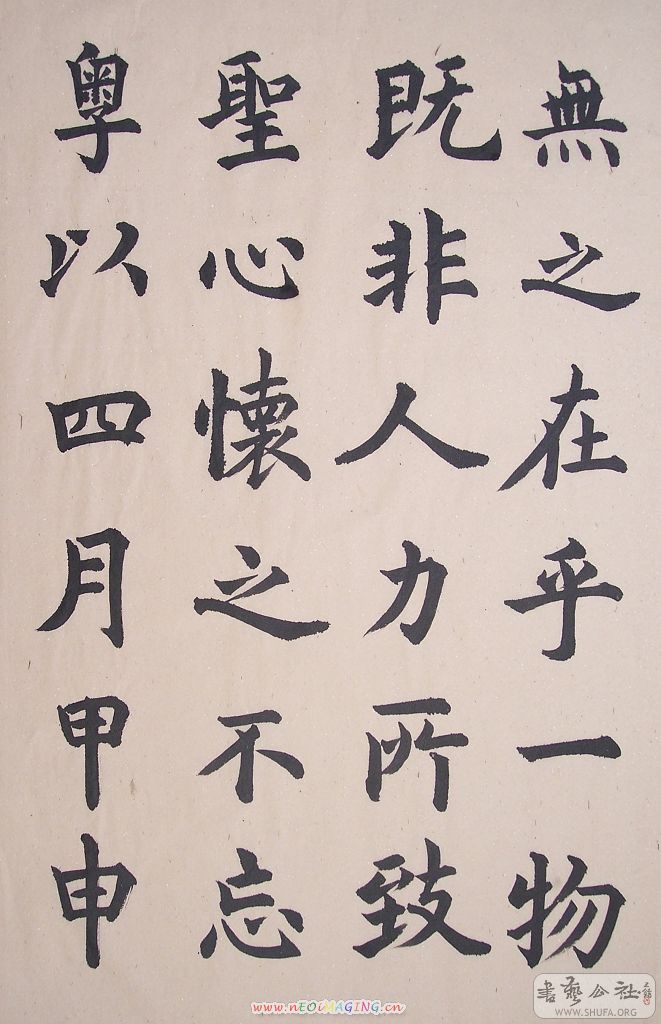 無之在乎一物
既非人力所致
聖心懷之不忘
粵以四月甲申
書藝公社
WWW.SHUFA.ORG
www.nEOiMAGING.cn